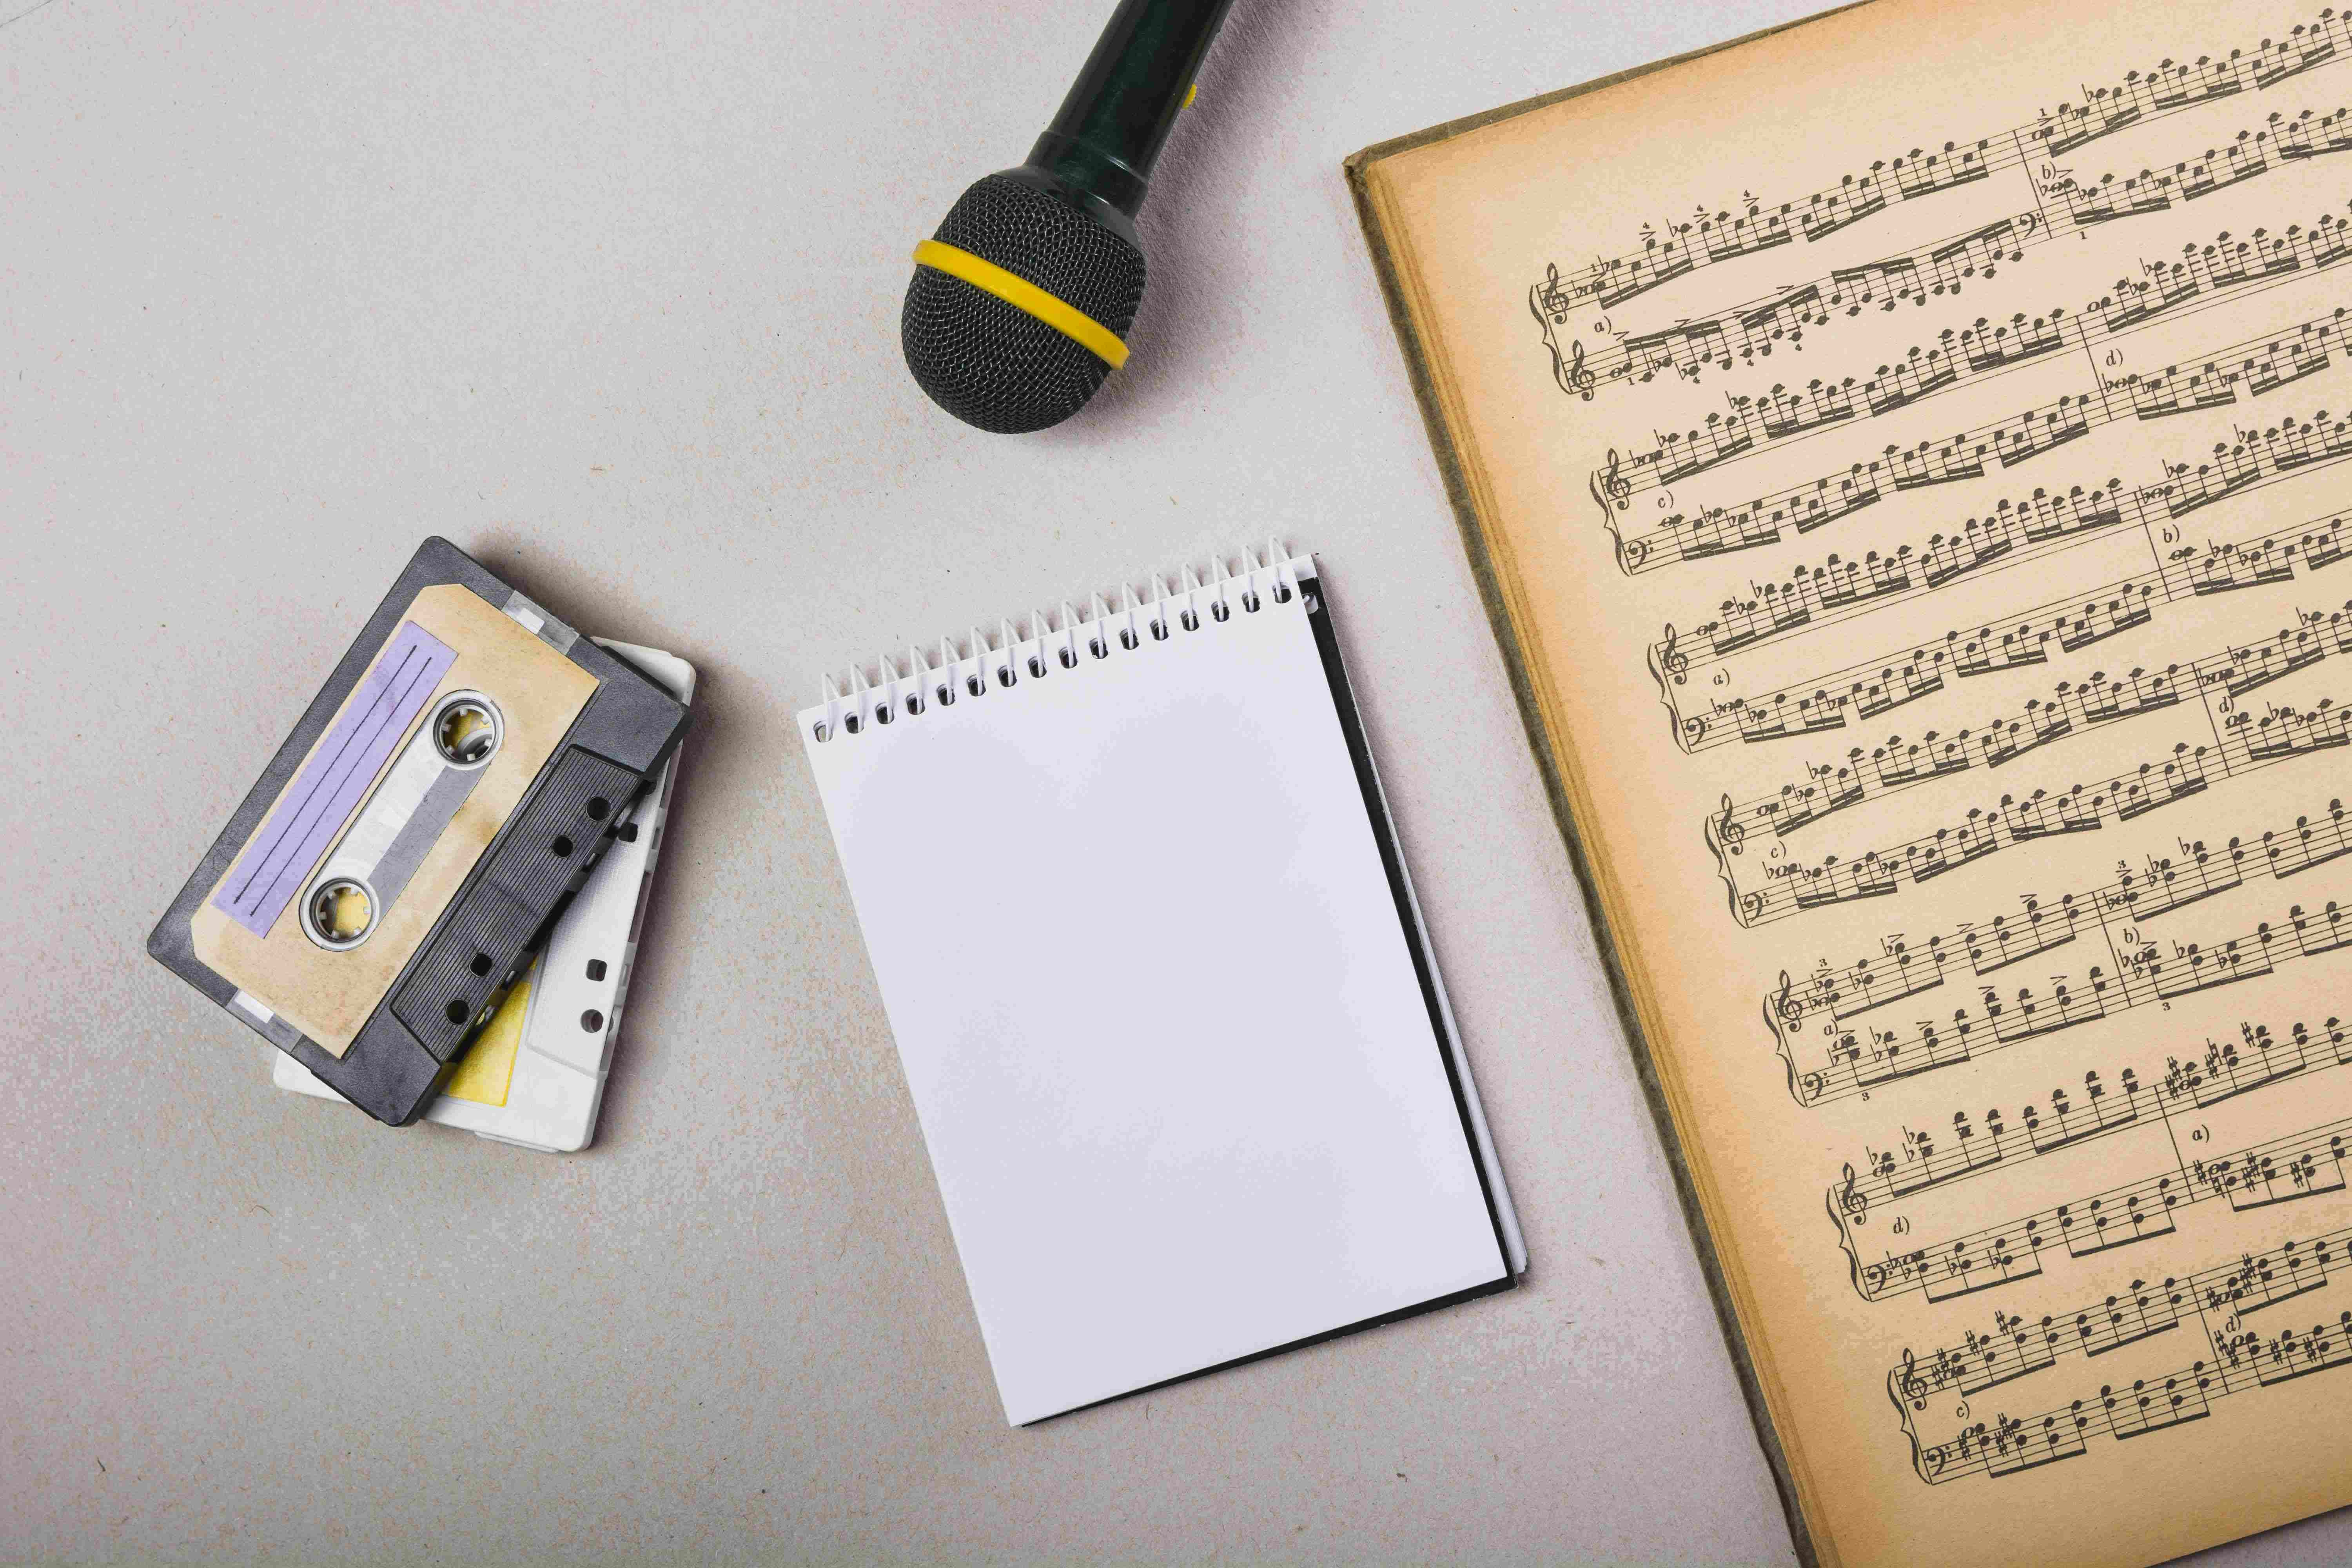 a)
b)
c)
d)
a)
b)
c)
d)
a)
b)
d)
a)
c)
d)